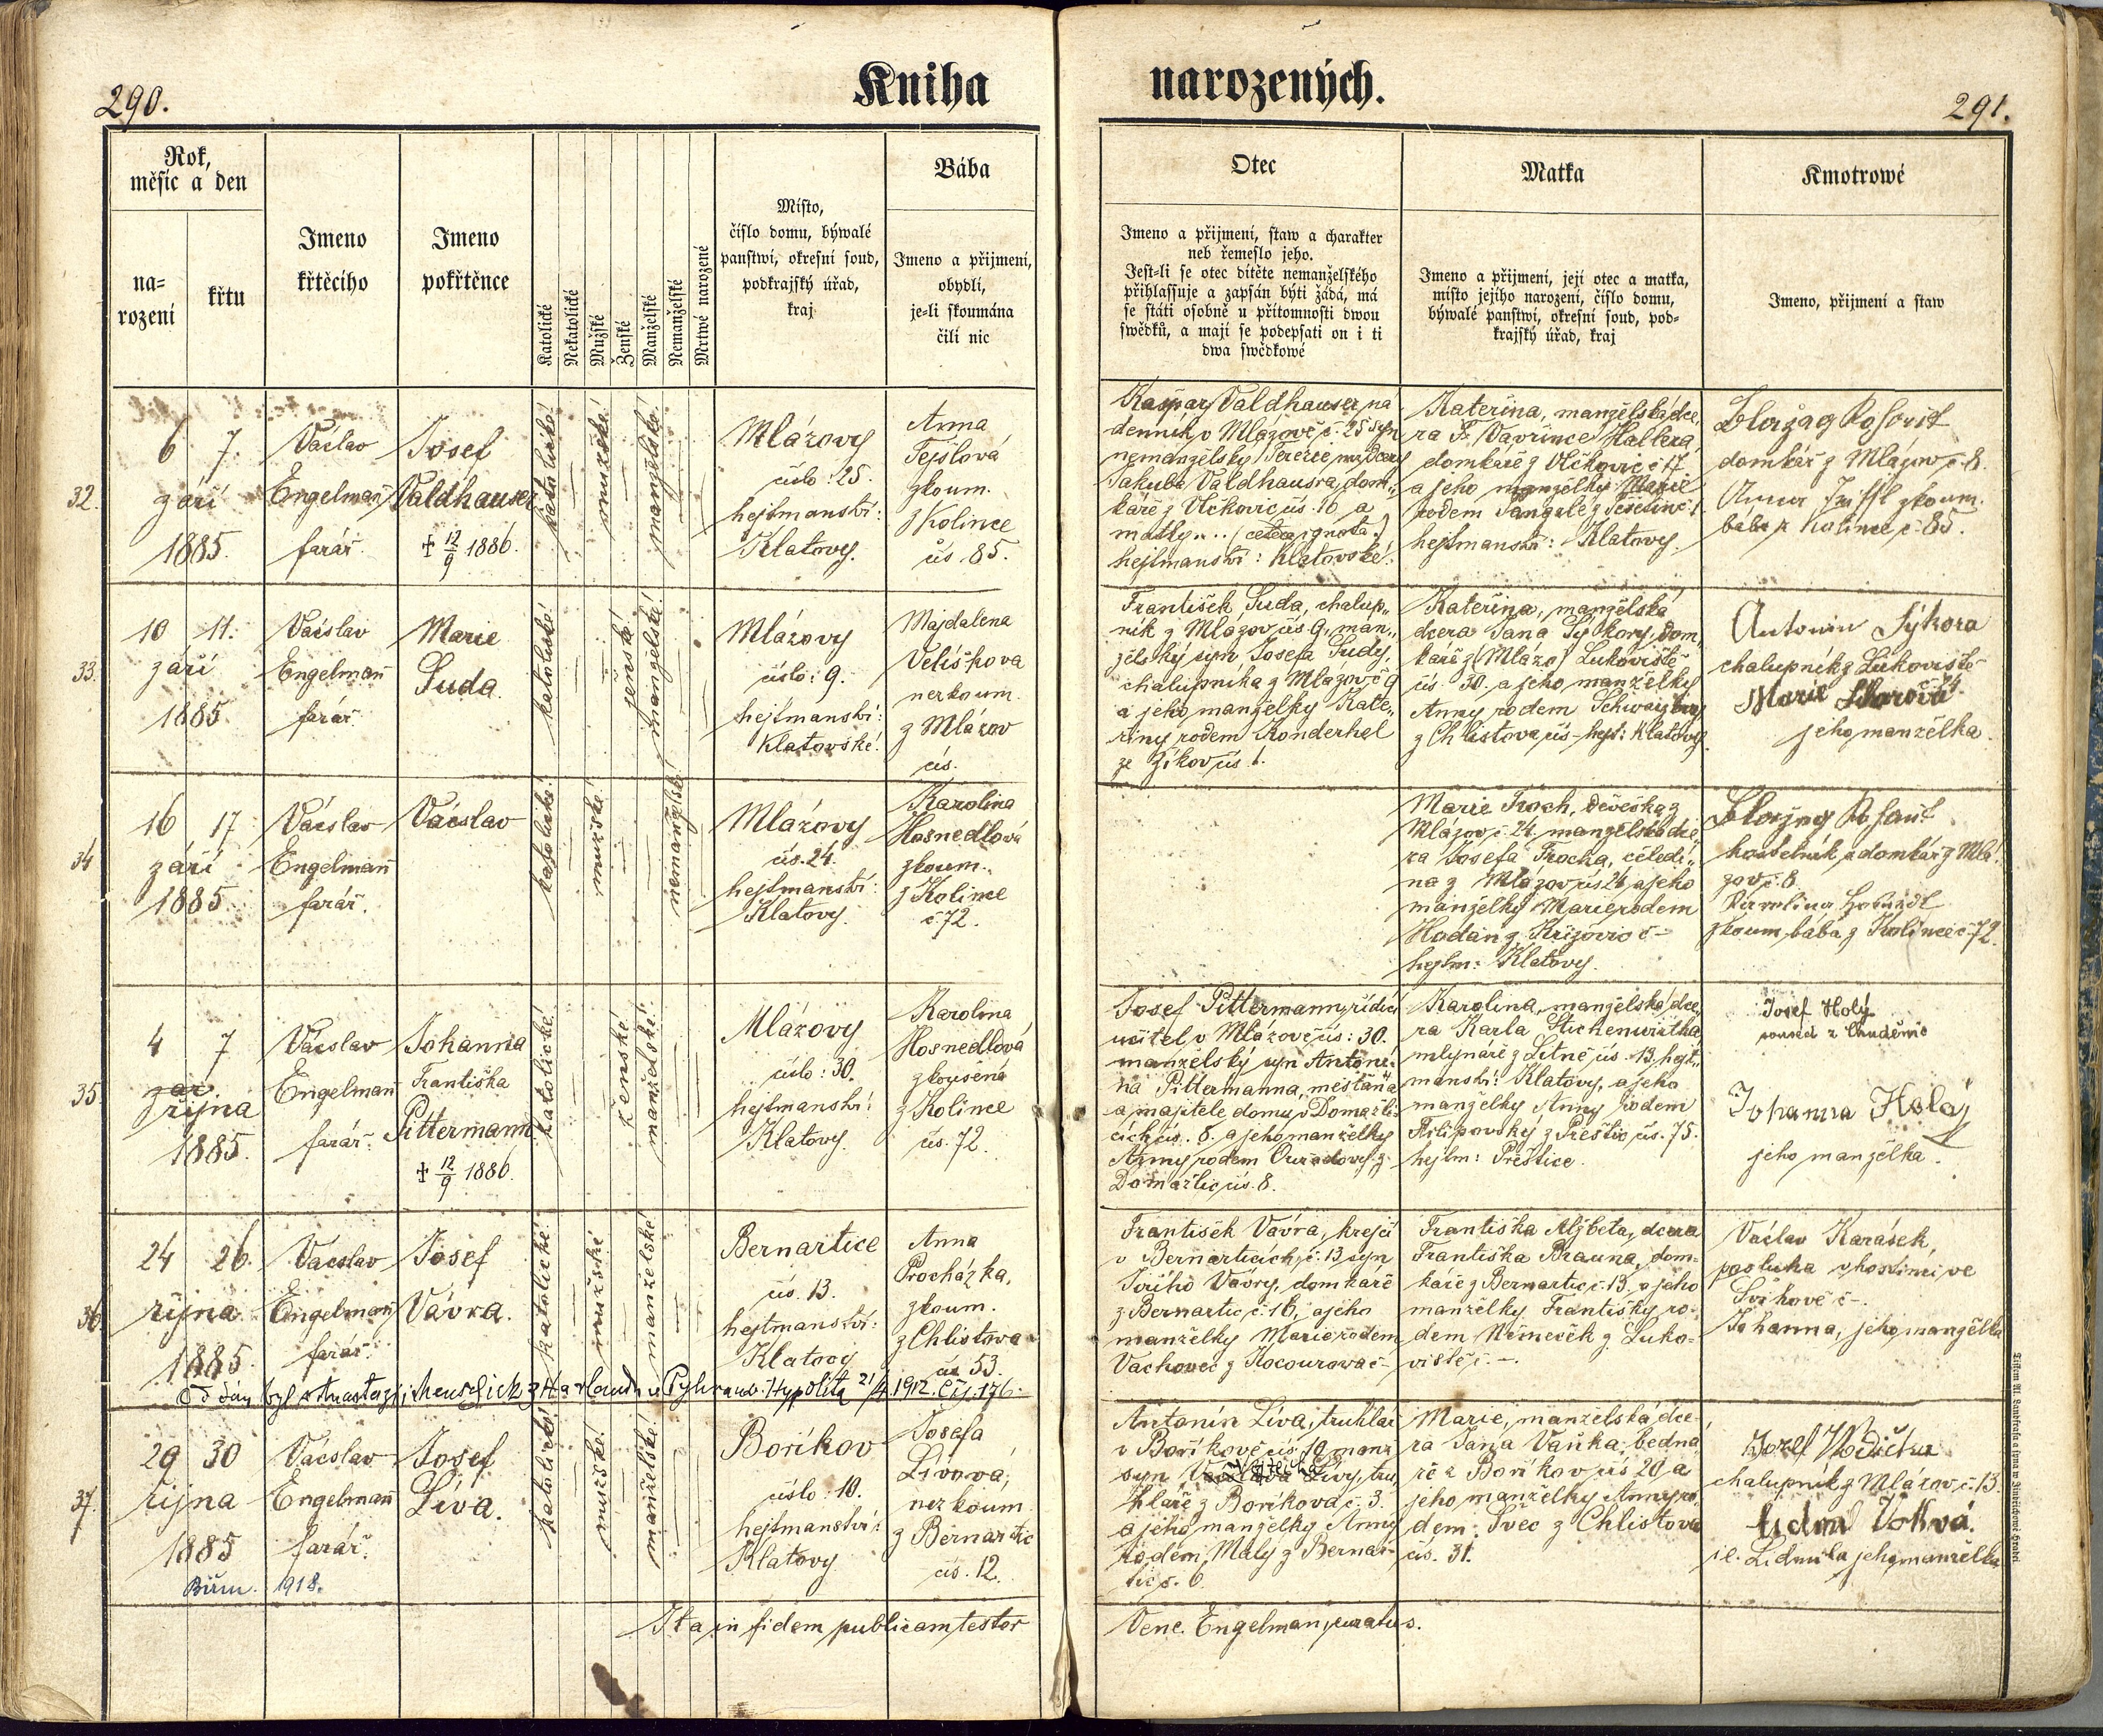 290.
Kniha
narozených.
291.
Rok,
měsíc a den
na=
rození
křtu
Jmeno
křtěcího
Jmeno
pokřtěnce
Katolické
Nekatolické
Mužské
Ženské
Manželské
Nemanželské
Mrtwé narozené
Místo,
číslo domu, býwalé
panstwí, okresní soud,
podkrajský úřad,
kraj
Bába
Jmeno a přijmení,
obydlí,
je-li skoumána
čili nic
Otec
Jmeno a přijmení, staw a charakter
neb řemeslo jeho.
Jest=li se otec dítěte nemanželského
přihlassuje a zapsán býti žádá, má
se státi osobně u přítomnosti dwou
swědků, a mají se podepsati on i ti
dwa swědkowé
Matka
Jmeno a přijmení, její otec a matka,
místo jejího narození, číslo domu,
býwalé panstwí, okresní soud, pod=
krajský úřad, kraj
Kmotrowé
Jmeno, přijmení a staw
32.
6 7.
září
1885.
Václav
Engelmañ
farář.
Josef
Valdhauser
✝ 12/9 1886.
katolické!
mužské!
manželské!
Mlázovy
číslo: 25.
hejtmanství:
Klatovy.
Anna
Tejslová
zkoum.
z Kolince
čís. 85.
Kašpar Valdhauser, ná
denník v Mlázově č. 25 syn
nemanželský Terezie
Jakuba Valdhausra, dom„
káře z Vlčkovic čís. 16 a
matky... (cetera ignota.)
hejtmanství: Klatovské!
Kateřina, manželská dce„
ra Vavřince Hallera
domkáře z Vlčkovic č 17.
a jeho manželky Marie
rodem
hejtmanství: Klatovy.
domkář z Mlázov č. 8.
Anna zkoum.
bába z Kolince č. 85.
33.
10 11.
září
1885.
Vácslav
Engelmañ
farář.
Marie
Suda.
katolické!
ženské!
manželské!
Mlázovy
číslo: 9.
hejtmanství:
Klatovské!
Majdalena
Velíškova
nezkoum.
z Mlázov
čís.
František Suda, chalup„
ník z Mlázov čís 9., man„
želský syn Josefa Sudy,
chalupníka z Mlázov č 9
a jeho manželky Kate„
řiny rodem Konderhel
ze Zíkov čís. 1.
Kateřina, manželská
dcera Jana Sýkory, dom
káře z (Mlázo) Lukoviště
čís. 30. a jeho manželky
Anny rodem
z Chlistova čís – hejt: Klatovy.
Antonín Sýkora
chalupník z Lukoviště
Marie
jeho manželka.
34
16 17
září
1885.
Vácslav
Engelmañ
farář.
Vácslav
katolické!
mužské!
nemanželské!
Mlázovy
čís. 24.
hejtmanství:
Klatovy.
Karolina
Hosnedlová
zkoum.
z Kolince
č. 72.
Marie Troch, děvečka z
Mlázov č. 24. manželská dce
ra Josefa Trocha, čeledí„
na z Mlázov čís 24 a jeho
manželky Marie rodem
Hodan z Křížovic č –
hejtm: Klatovy.
a domkář z Mlá
zov č. 8.
zkoum. bába z Kolince č. 72.
35.
4 7
října
1885.
Vácslav
Engelmañ
farář.
Johanna
Františka
Pittermann
✝ 12/9 1886.
katolické!
ženské!
manželské!
Mlázovy
číslo: 30.
hejtmanství:
Klatovy.
Karolina
Hosnedlová
zkousená
z Kolince
čís. 72.
Josef Pittermann, řídící
učitel v Mlázově čís: 30.
manželský syn Antoní„
na Pittermanna, měšťana
a majitele domu v Domažli„
cích čís. 8. a jeho manželky
Anny rodem z
Domažlic čís. 8.
Karolina, manželská dce„
ra Karla Stichenwirtha,
mlynáře z Letně čís. 13. hejt„
manství: Klatovy, a jeho
manželky Anny rodem
Filipovsky z Přeštic čís. 75.
hejtm: Přeštice.
Josef Holý
soused z Chuděnic
Johanna Holá
jeho manželka.
36.
24 26.
října
1885.
Vácslav
Engelmañ
farář.
Josef
Vávra.
katolické!
mužské
manželské!
Bernartice
čís. 13.
hejtmanství:
Klatovy
Anna
Procházka,
zkoum.
z Chlistova
čís 53.
František Vavra, krejčí
v Bernarticích, č. 13 syn
Jiřího Vavry, domkáře
z Bernartic, č. 16, a jeho
manželky Marie rodem
Vachovec z Kocourova č –
Františka Alžbeta, dcera
Františka Brauna, dom-
káře z Bernartic č. 13. a jeho
manželky Františky ro-
dem Němeček z Luko-
viště č. –.
Václav Karásek,
posluha v hostinci ve
Švihově č –.
Johanna, jeho manželka
Oddán byl s Anastazií z Harland u Pyhra nw. Hypolita 21/4 1912. Čís. 176.
37.
29 30
října
1885
Vácslav
Engelmañ
farář.
Josef
Líva.
katolické!
mužské!
manželské!
Boříkov
číslo: 10.
hejtmanství:
Klatovy.
Josefa
Lívová,
nezkoum
z Bernartic
čís. 12.
Antonín Líva, truhlář
v Boříkově čís. 10 manž
syn Vojtěcha Lívy, tru„
hláře z Boříkova č. 3.
a jeho manželky Anny
rodem Malý z Bernar-
tic č. 6.
Marie, manželská dce-
ra Jana Vaňka, bedná
ře z Boříkov čís 20 a
jeho manželky Anny ro„
dem Švec z Chlistova
čís. 31.
Jozef
chalupník z Mlázov č. 13.
i e. Lidmila jeho manželka
Biřm. 1918.
Ita in fidem publicam testor
Venc. Engelman, curatus.